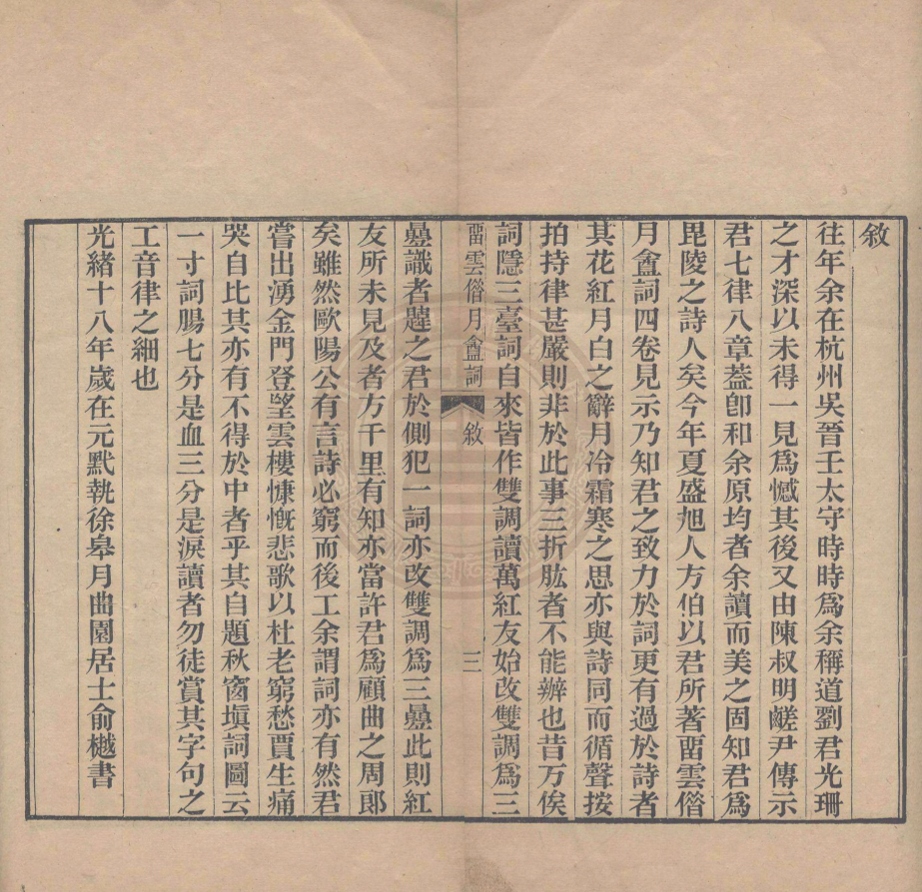 敘
往年余在杭州吳晉壬太守時時爲余稱道劉君光珊
之才深以未得一見爲憾其後又由陳叔明鹺尹傳示
君七律八章葢卽和余原均者余讀而美之固知君爲
毘陵之詩人矣今年夏盛旭人方伯以君所著畱雲借
月盦詞四卷見示乃知君之致力於詞更有過於詩者
其花紅月白之辭月冷霜寒之思亦與詩同而循聲按
拍持律甚嚴則非於此事三折肱者不能辦也昔万俟
詞隱三臺詞自來皆作雙調讀萬紅友始改雙調爲三
畱雲借月盦詞 敘 三
曡識者韙之君於側犯一詞亦改雙調爲三曡此則紅
友所未見及者方千里有知亦當許君爲顧曲之周郞
矣雖然歐陽公有言詩必窮而後工余謂詞亦有然君
嘗出湧金門登望雲樓慷慨悲歌以杜老窮愁賈生痛
哭自比其亦有不得於中者乎其自題秋窗塡詞圖云
一寸詞腸七分是血三分是淚讀者勿徒賞其字句之
工音律之細也
光緒十八年歲在元黓執徐皋月曲園居士俞樾書